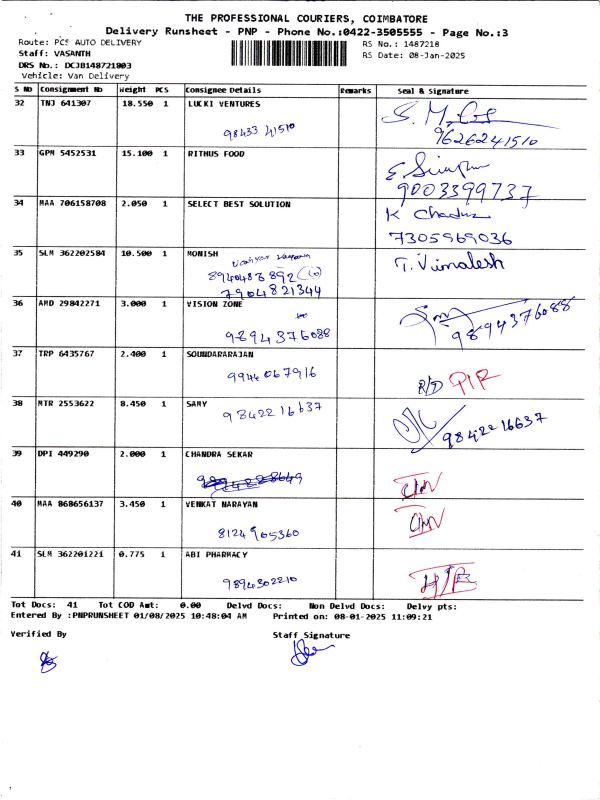 THE PROFESSIONAL COURIERS, COIMBATORE
Delivery Runsheet - PNP - Phone No.:0422-3505555 - Page No.:3
Route: PCS AUTO DELIVERY
RS No.: 1487218
Staff: VASANTH
RS Date: 08-Jan-2025
DRS No.: DCJB148721803
Vehicle: Van Delivery
S No Consignment No Weight PCS Consignee Details Remarks Seal & Signature
32 TNJ 641307 18.550 1 LUCKI VENTURES
98433 41510
9626241510
33 GPM 5452531 15.100 1 RITHUS FOOD
9003399737
34 MAA 706158708 2.050 1 SELECT BEST SOLUTION
7305969036
35 SLM 362202584 10.500 1 MONISH T. Vimalesh
8940483892
7904821344
36 AMD 29842271 3.000 1 VISION ZONE
9894376088 9894376088
37 TRP 6435767 2.400 1 SOUNDARARAJAN
9944067916 R/D
38 MTR 2553622 8.450 1 SAMY
9842216637 9842216637
39 DPI 449290 2.000 1 CHANDRA SEKAR
40 MAA 868656137 3.450 1 VENKAT NARAYAN
8124905360
41 SLM 362201221 0.775 1 ABI PHARMACY
9894302210
Tot Docs: 41 Tot COD Amt: 0.00 Delvd Docs: Non Delvd Docs: Delvy pts:
Entered By :PNPRUNSHEET 01/08/2025 10:48:04 AM Printed on: 08-01-2025 11:09:21
Verified By Staff Signature